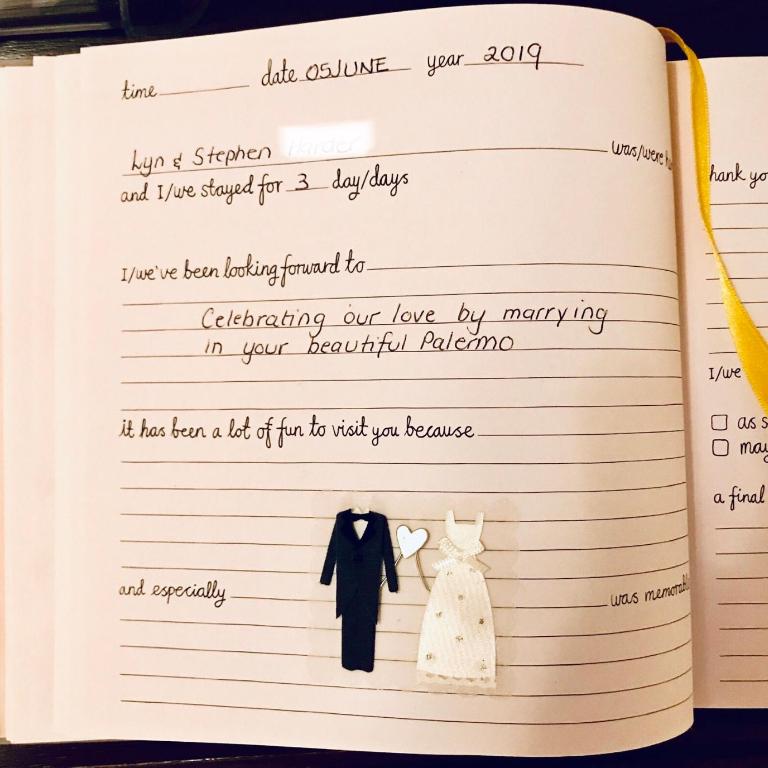 time date 05JUNE year 2019
Lyn & Stephen was/were
and I/we stayed for 3 day/days
I/we've been looking forward to
Celebrating our love by marrying
in your beautiful Palermo
it has been a lot of fun to visit you because
and especially was
hank yo
I/we
as s
may
a final